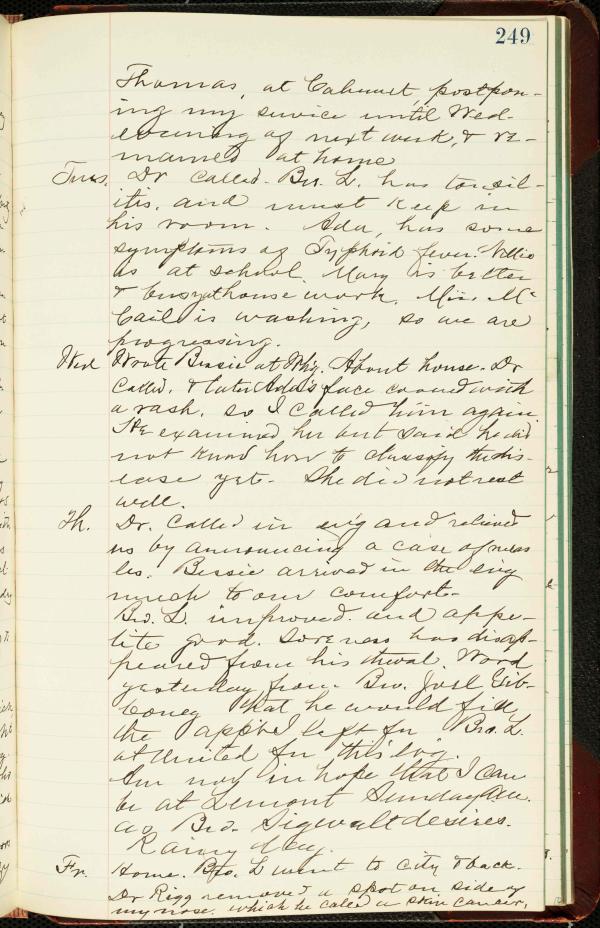 249
Thomas, at Calumet, postpon-
ing my service until Wed-
evening of next week, & re-
mained at home
Tues. Dr called. Bro. L. has tonsil-
itis. and must keep in
his room. Ada, has some
symptoms of Typhoid fever. Nellie
is at school. Mary is better
& busy at house work. Mrs. Mc
Cail is washing, so we are
progressing.
Wed Wrote Bessie at Phg. About house. Dr
called. & later Ada's face covered with
a rash. so I called him again
He examined her but said he did
not know how to classify the dis-
ease yet. She did not rest
well.
Th. Dr. called in ev'g and relieved
us by announcing a case of meas
les. Bessie arrived in the evg
much to our comfort.
Bro. L. improved. and appe-
tite good. Soreness has disap-
peared from his throat. Word
yesterday from Bro. Joel Gib-
boney that he would fill
the app't left for Bro. L.
at United for this evg.
Am now in hope that I can
be at Lemont Sunday a.m.
as Bro. Sigwalt desires.
Rainy day.
Fr. Home. Bro. L went to city & back.
Dr Rigg removed a spot on side of
my nose. which he called a skin cancer,